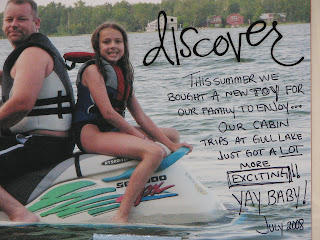 discover
THIS SUMMER WE
BOUGHT A NEW TOY FOR
OUR FAMILY TO ENJOY...
OUR CABIN
TRIPS AT GULL LAKE
JUST GOT A LOT
MORE
EXCITING!!
YAY BABY!
JULY 2008
SEADOO